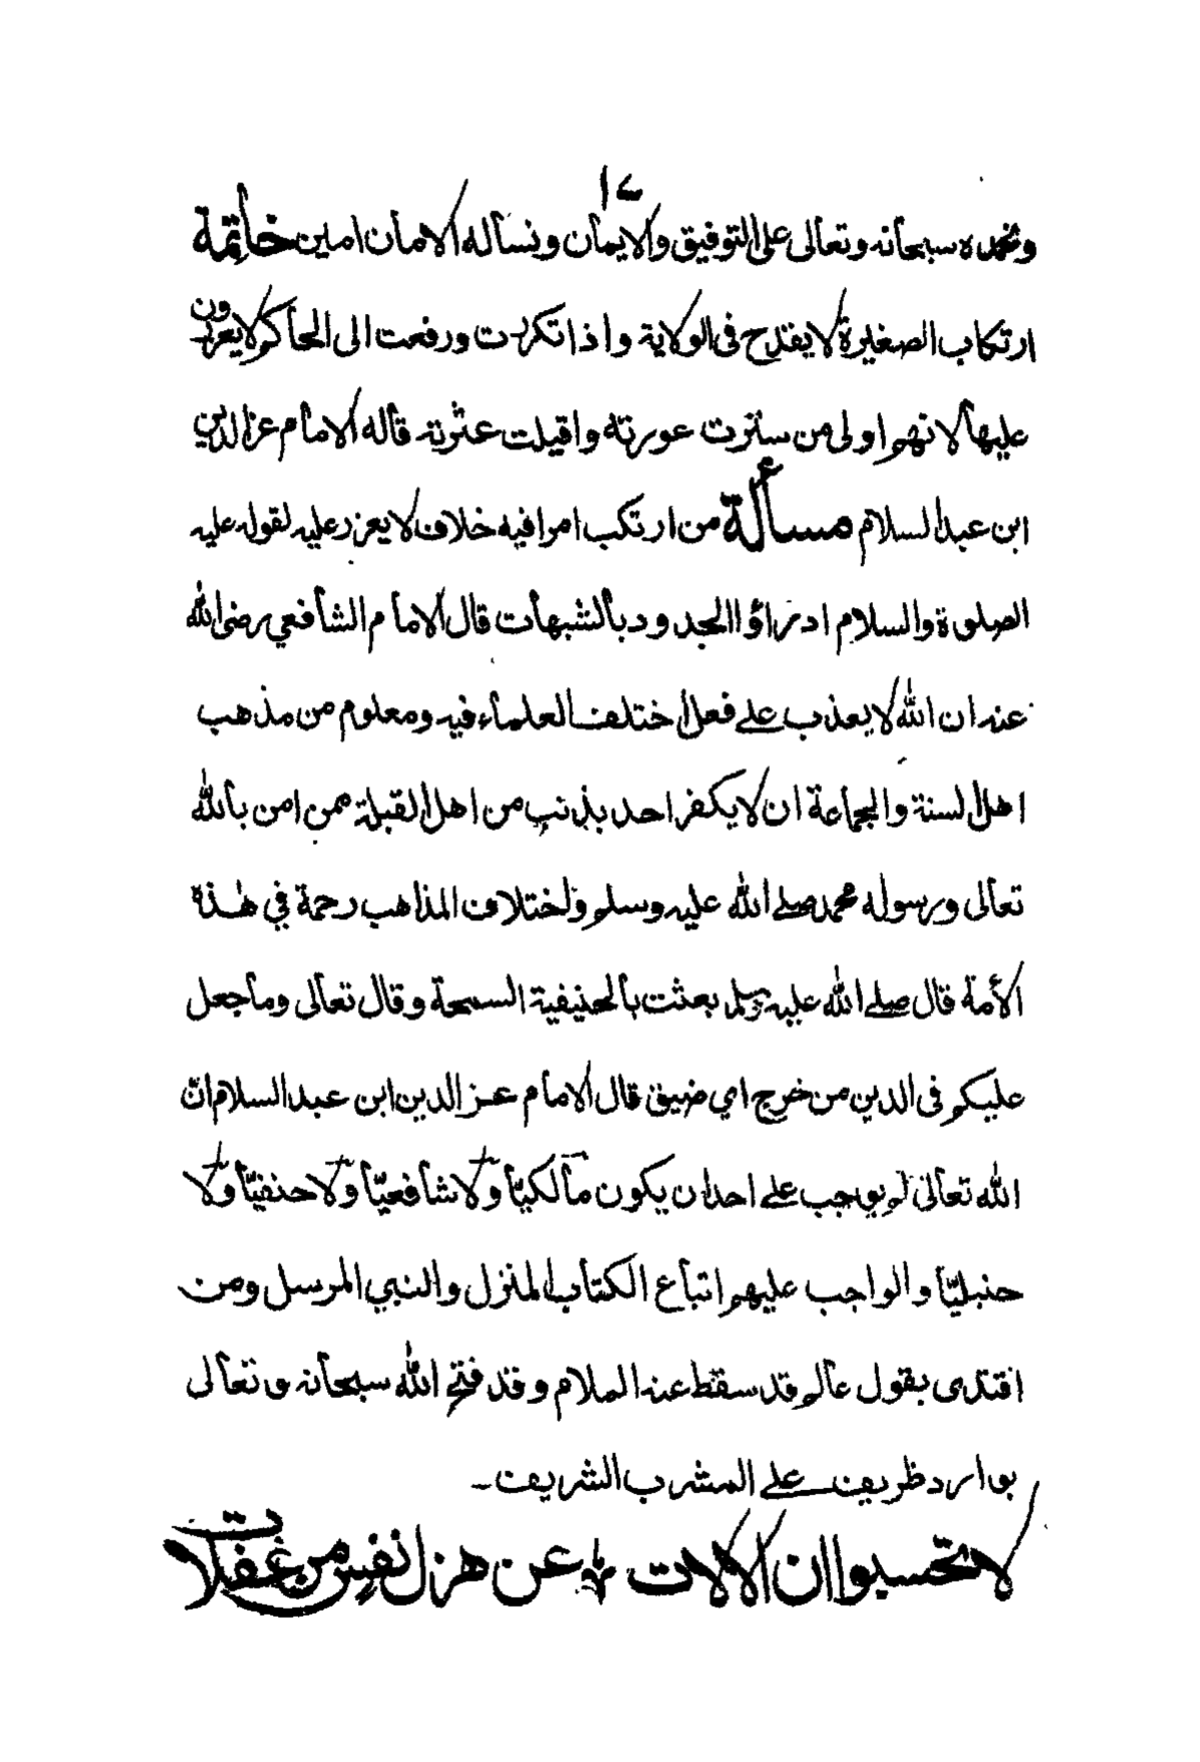 ١٧
ونحمده سبحانه وتعالى على التوفيق والايمان ونسأله الامان امين خاتمة
ارتكاب الصغيرة لا يقدح فى الولاية واذا تكررت ورفعت الى الحاكم لا يعزرون
عليها لانهم اولى من سترت عورته واقيلت عثرته قاله الامام عز الدين
ابن عبد السلام مسألة من ارتكب امرا فيه خلاف لا يعزر عليه لقوله عليه
الصلوة والسلام ادرؤا الحدود بالشبهات قال الامام الشافعي رضى الله
عنه ان الله لا يعذب على فعل اختلف العلماء فيه ومعلوم من مذهب
اهل السنة والجماعة ان لا يكفر احد بذنب من اهل القبلة ممن امن بالله
تعالى ورسوله محمد صلى الله عليه وسلم واختلاف المذاهب رحمة في هذه
الأمة قال صلى الله عليه وسلم بعثت بالحنيفية السمحة وقال تعالى وما جعل
عليكم فى الدين من خرج اي ضيق قال الامام عز الدين ابن عبد السلام انّ
الله تعالى لم يوجب على احد ان يكون مالكيّا ولا شافعيّا ولا حنفيّا ولا
حنبليّا والواجب عليهم اتباع الكتاب المنزل والنبي المرسل ومن
اقتدى بقول عالم قد سقط عنه الملام وقد فتح الله سبحانه وتعالى
بوارد ظريف على المشرب الشريف ـ
لا تحسبوا ان الالات عن هزل نفس من غفلات